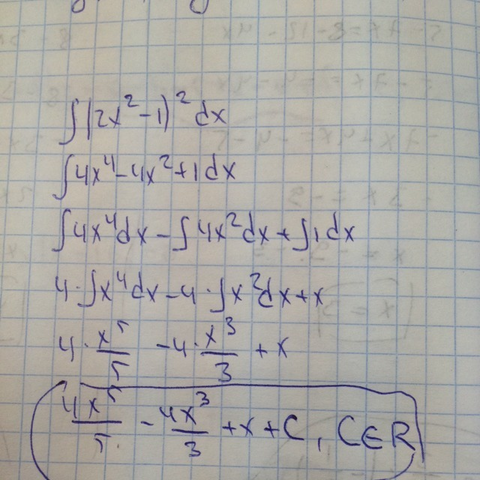 ∫(2x² - 1)² dx
∫4x⁴ - 4x² + 1 dx
∫4x⁴dx - ∫4x²dx + ∫1 dx
4·∫x⁴dx - 4·∫x²dx + x
4·x⁵/5 - 4·x³/3 + x
4x⁵/5 - 4x³/3 + x + C, C∈R